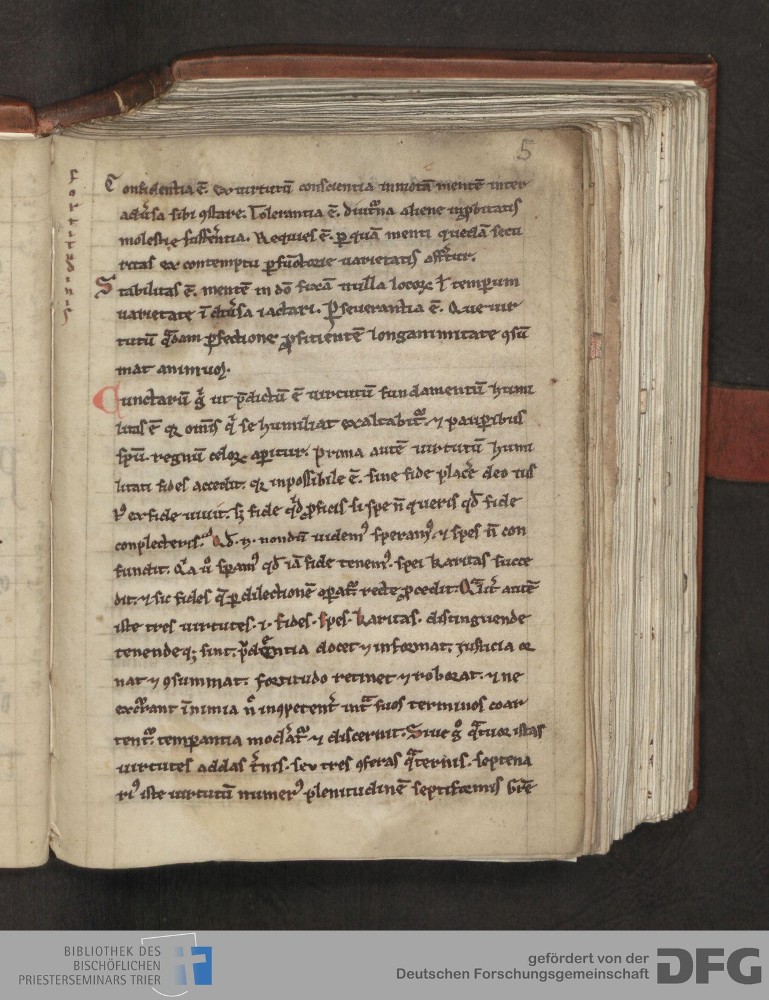 5
fortitudinis
Confidentia ē. ex uirtutū conscientia inmotā mentē inter
aduͥsa sibi ꝯstare. Tolerantia ē. diutͥna aliene inp̄bitatis
molestie suffeͬntia. Requies ē. ꝑ quā menti quedā secu
ritas ex contemptu ꝑfunctorie uarietatis affͬtur.
Stabilitas ē. mentē in dō fixā nulla locoꝝ ł tempum
uarietate ī diuͥsa iactari. Pseuerantia ē. Que uir
tutū q̄dam ꝑfectione ꝓficientē longanimitate ꝯsū
mat animuꝫ.
Cunctarū g̊ ut p̄dictū ē uirtutū fundamentū humi
litas ē qꝛ omīs qͥ se humiliat exaltabit᷑. ⁊ pauꝑibus
spū. regnū celoꝝ aꝑitur. Prima autē uirtutū humi
litati fides accedit. qꝛ inpossibile ē. sine fide placeͬ deo
ex fide uiuit. sꝫ fide qͥd ꝓficis si spe n̄ queris qd̄ fide
conplecteris. Qd̄ .n. nondū uidemꝰ speramꝰ. ⁊ spes n̄ con
fundit. Q̄a ů spamꝰ qd̄ iā fide tenemꝰ. spei karitas succe
dit. ⁊ sic fides q̄ ꝑ dilectionē oꝑat᷑ recte ꝓcedit. autē
iste tres uirtutes .i. fides. spes. karitas. distinguende
tenendeqꝫ sint. prudentia docet ⁊ informat. iusticia or
nat ⁊ ꝯsummat. fortitudo retinet ⁊ roborat. ⁊ ne
excͬcant īnimia ů inꝯpetent᷑ intͣ suos terminos coar
tent᷑. temperantia moderat᷑ ⁊ discernit. Siue g̊ qͣtuor istas
uirtutes addas tͬnis. seu tres ꝯferas qͣternis. septena
riꝰ iste uirtutū numerꝰ plenitudinē septiformis gr̄e
BIBLIOTHEK DES
BISCHÖFLICHEN
PRIESTERSEMINARS TRIER
gefördert von der
Deutschen Forschungsgemeinschaft
DFG